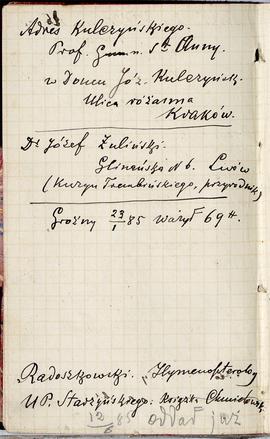 Adres Kulczyńskiego.
Prof. Gimn. Sᵗᵉ Anny.
w Domu Józ. Kulczyńsk.
Ulica różanna
Kraków.
Dr Józef Żuliński.
Glinańska N 6. Lwów
(Kuzyn Trembińskiego, przyrodnik)
Groźny 23/1 85 ważył 69 ℔.
Radoszkowski. Hymenopterolog
U P. Starzyńskiego: książka Chmielowsk.
12/6 85 oddał już